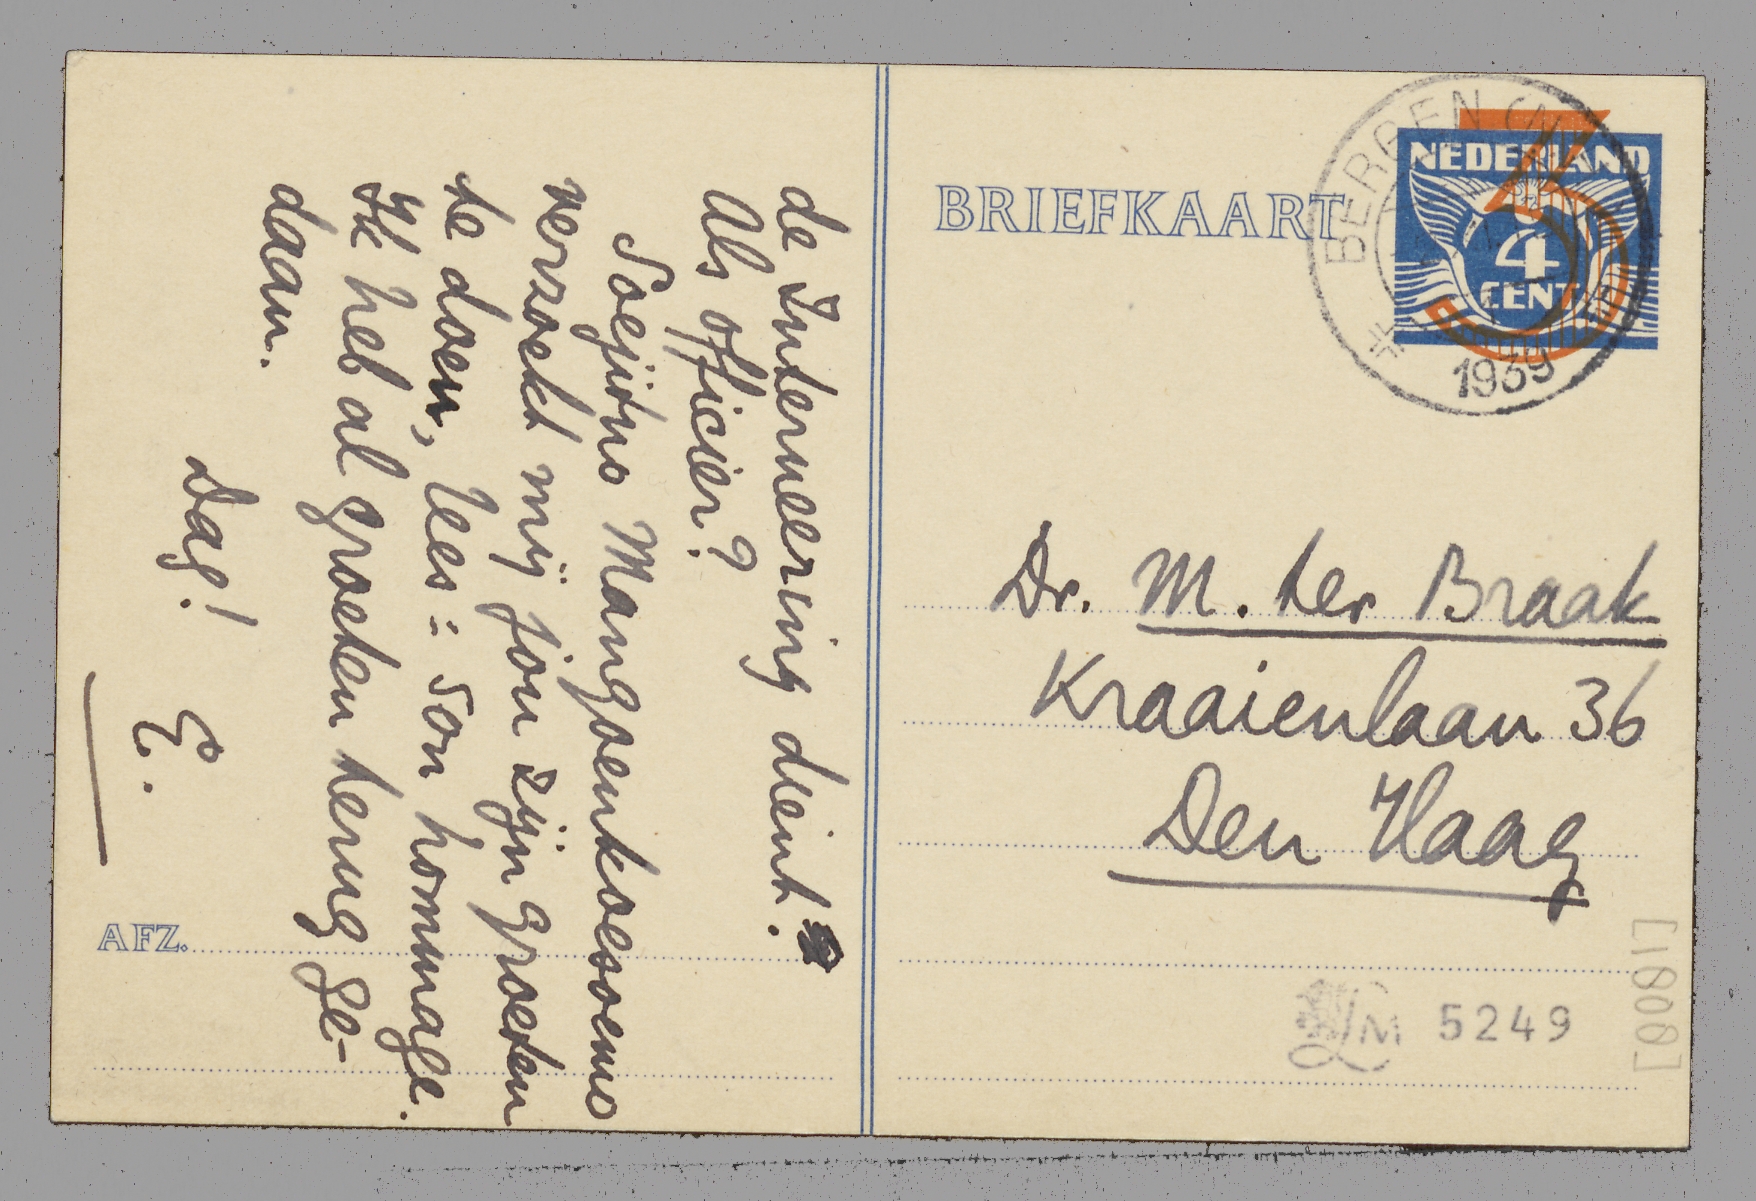 de Interneering dient.
Als officier?
Soejitno Mangoenkoesoemo
verzoekt mij jou zijn groeten
te doen, lees: son hommage.
Ik heb al groeten terug ge-
daan.
Dag!
E.
AFZ.
BRIEFKAART
BERGEN (N
1939
NEDERLAND
3
4
CENT
Dr. M. ter Braak
Kraaienlaan 36
Den Haag
LM 5249
[1000]